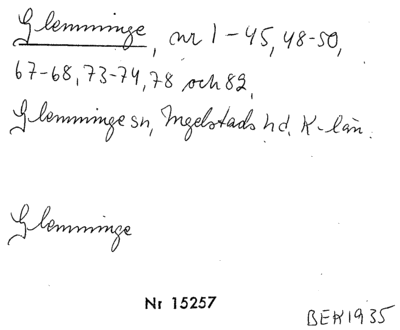 Glemminge, nr 1-45, 48-50,
67-68, 73-74, 78 och 82,
Glemminge sn, Ingelstads hd. K-län.
Glemminge
Nr 15257
BEH 1935